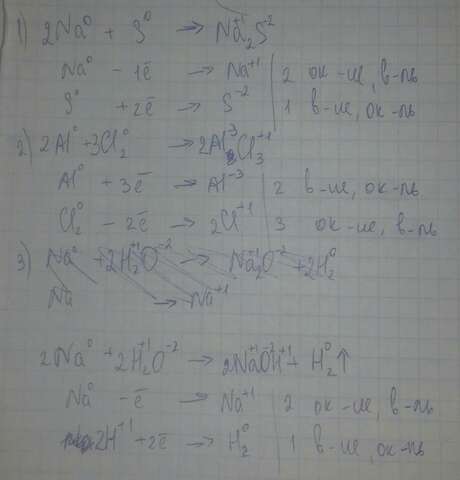 1) 2Na⁰ + S⁰ → Na₂⁺¹S⁻²
Na⁰ - 1ē → Na⁺¹ | 2 ок-ие, в-ль
S⁰ + 2ē → S⁻² | 1 в-ие, ок-ль
2) 2Al⁰ + 3Cl₂⁰ → 2Al⁻³Cl₃⁺¹
Al⁰ + 3ē → Al⁻³ | 2 в-ие, ок-ль
Cl₂⁰ - 2ē → 2Cl⁺¹ | 3 ок-ие, в-ль
3) Na⁰ + 2H₂⁺¹O⁻² → Na₂⁺¹O⁻² + 2H₂⁰
Na → Na⁺¹
2Na⁰ + 2H₂⁺¹O⁻² → 2Na⁺¹O⁻²H⁺¹ + H₂⁰↑
Na⁰ - ē → Na⁺¹ | 2 ок-ие, в-ль
2H⁺¹ + 2ē → H₂⁰ | 1 в-ие, ок-ль